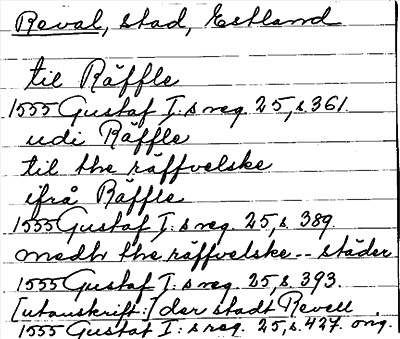 Reval, stad, Estland
til Räffle
1555 Gustaf I:s reg. 25, s. 361.
udi Räffle
til the räffvelske
ifrå Räffle
1555 Gustaf I:s reg. 25, s. 389
medh the räffvelske -- städer
1555 Gustaf I:s reg. 25, s. 393.
[utanskrift:] der stadt Revell
1555 Gustaf I:s reg. 25, s. 427. orig.